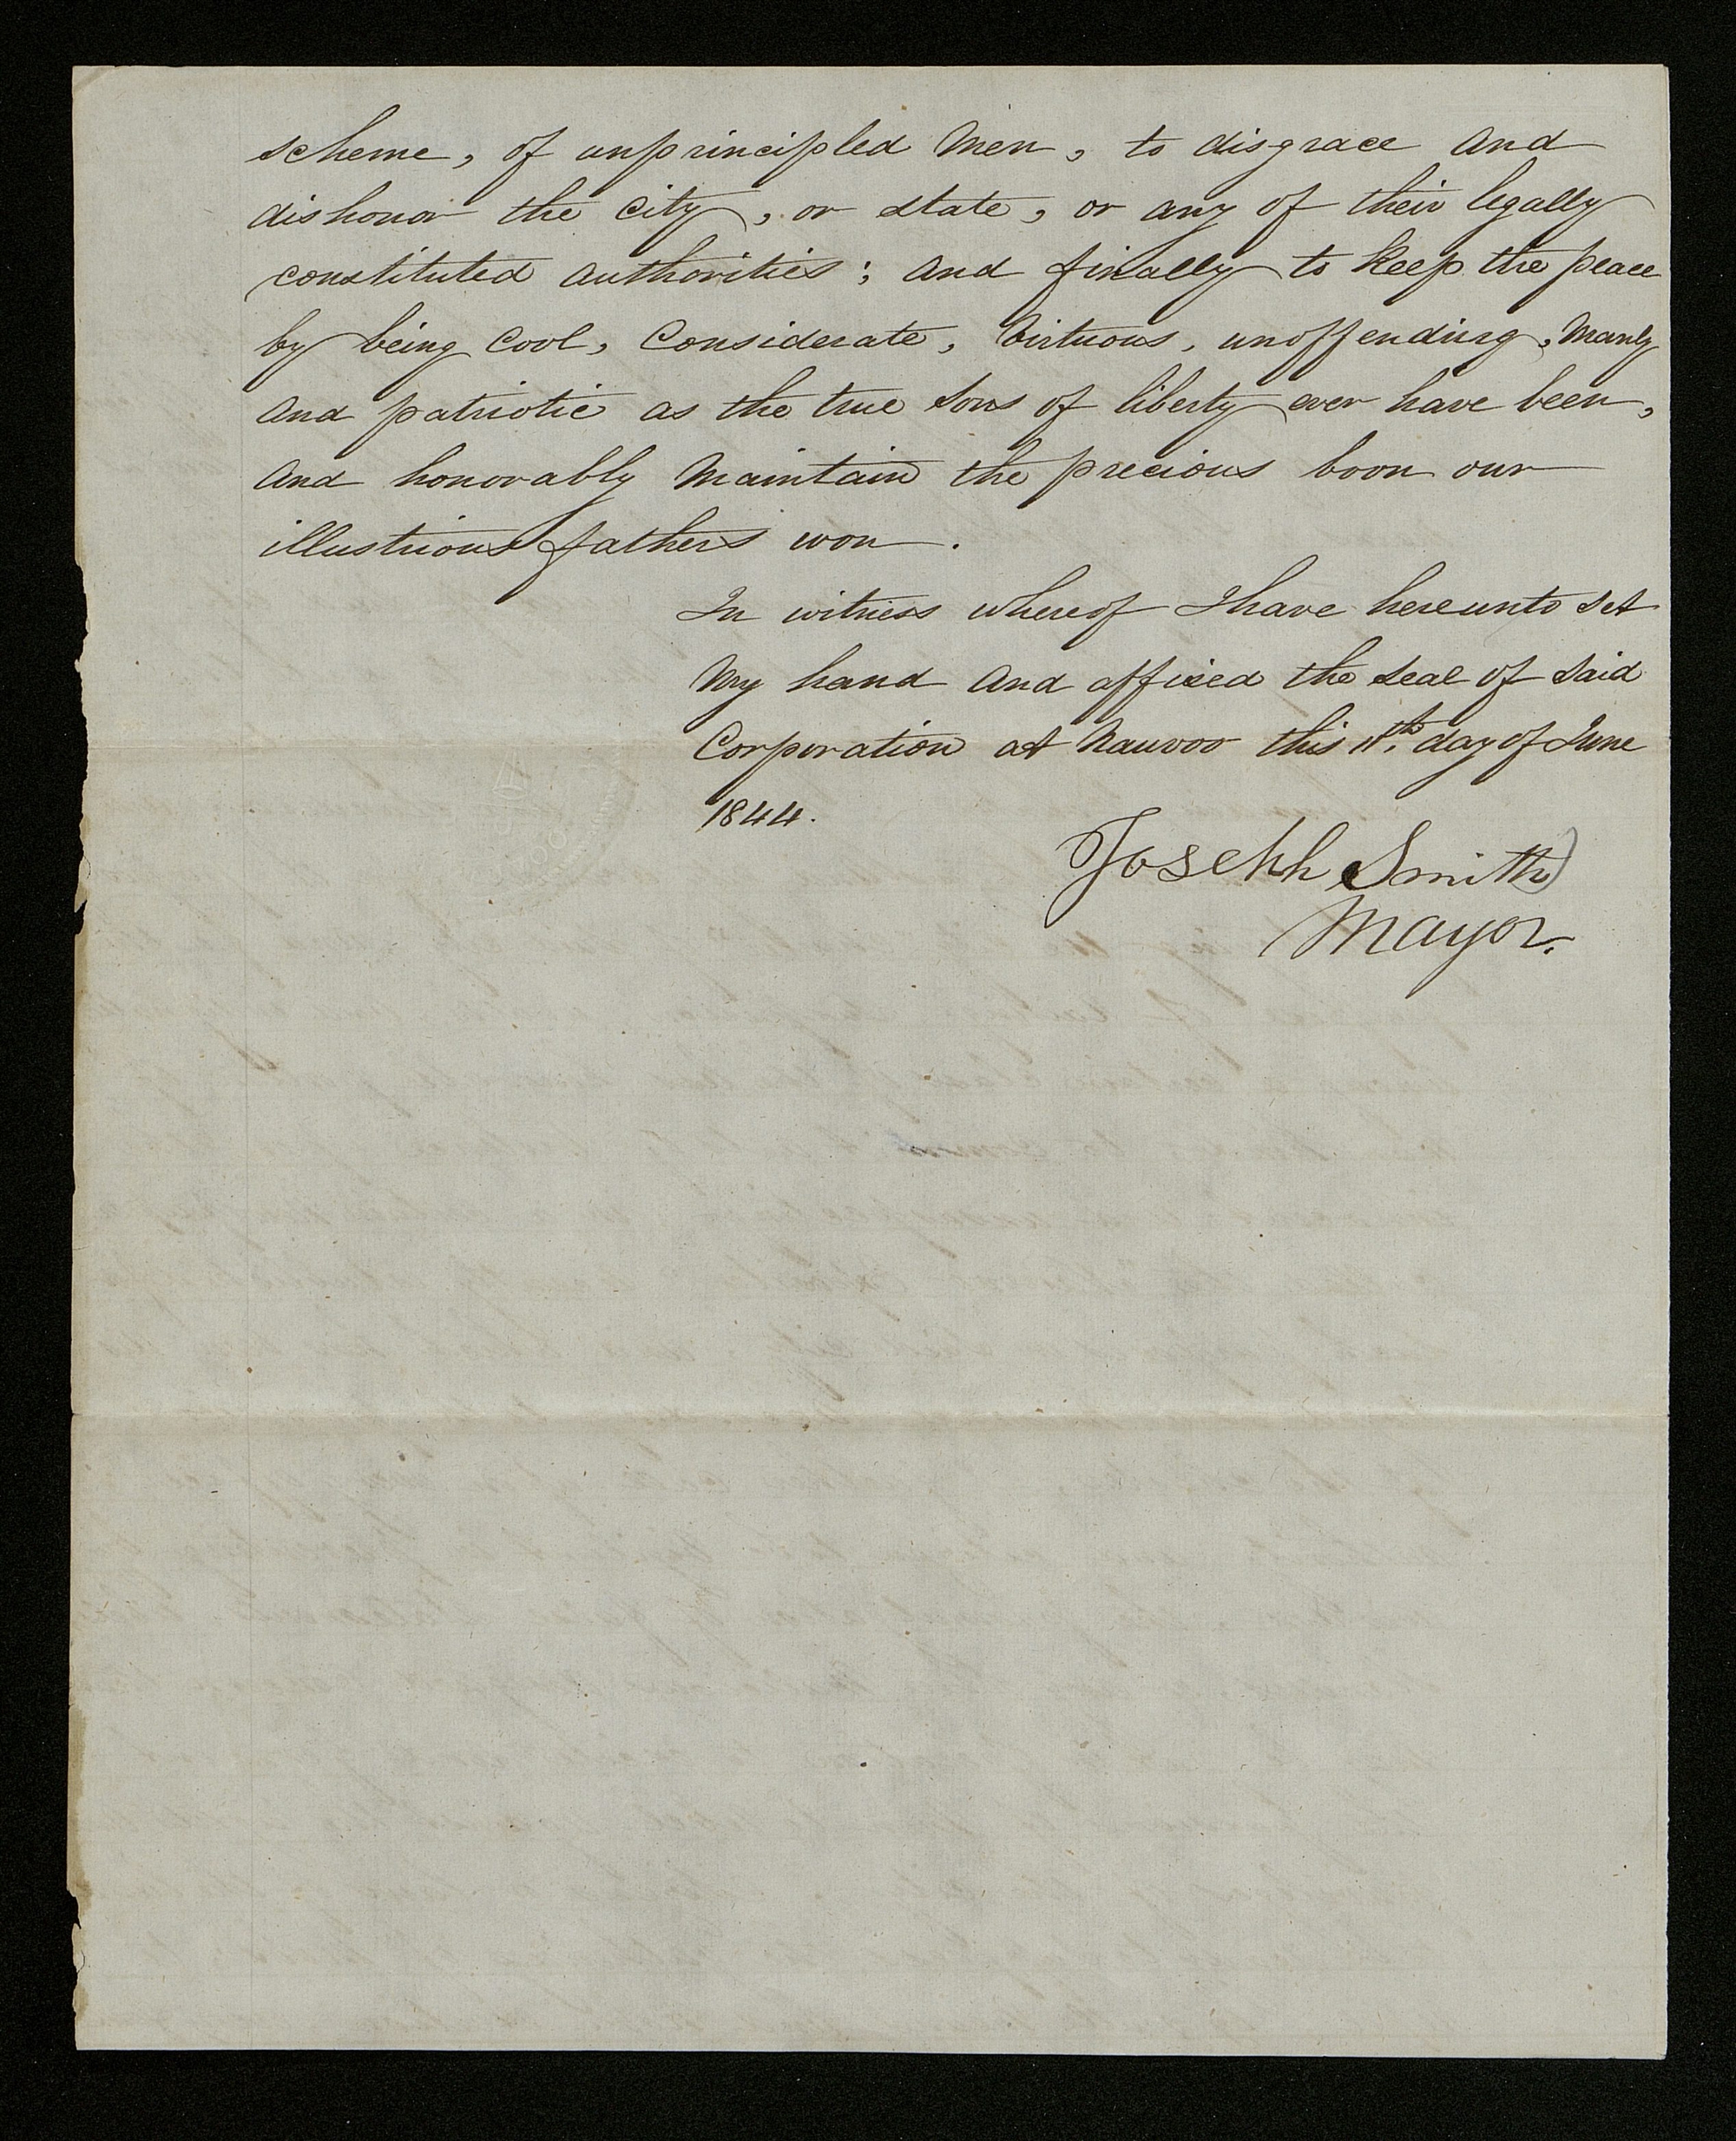 scheme, of unprincipled Men, to disgrace and
dishonor the city, or state, or any of their legally
constituted authorities; and finally to keep the peace
by being Cool, Considerate, Virtuous, unoffending, Manly
and patriotic as the true sons of liberty ever have been,
and honorably Maintain the precious boon our
illustrious fathers won.
In witness whereof I have hereunto set
My hand and affixed the seal of said
Corporation at Nauvoo this 11th. day of June
1844.
Joseph Smith
Mayor.